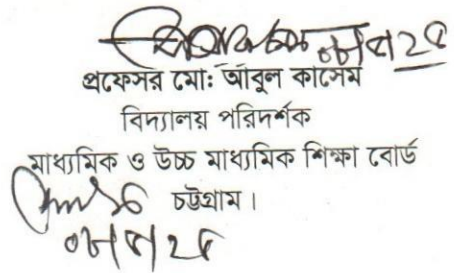 প্রফেসর মো: আবুল কাসেম
বিদ্যালয় পরিদর্শক
মাধ্যমিক ও উচ্চ মাধ্যমিক শিক্ষা বোর্ড
চট্টগ্রাম।